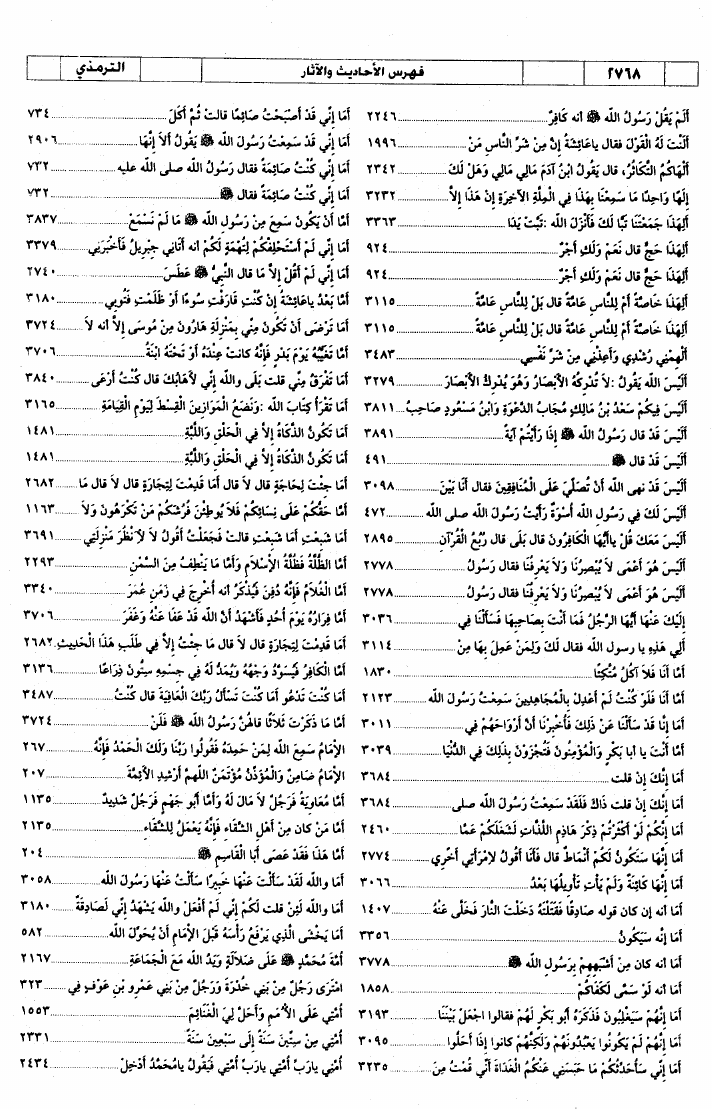 ٢٧٦٨ فهرس الأحاديث والآثار الترمذي
أَلَمْ يَقُلْ رَسُولُ اللَّه ﷺ أنه كَافِرٌ ........ ٢٢٤٦
أَلَنْتَ لَهُ الْقَوْلَ فقال ياعَائِشَةُ إنَّ مِنْ شَرِّ النَّاسِ مَنْ ........ ١٩٩٦
أَلْهَاكُمُ التَّكَاثُرُ، قال يَقُولُ ابْنُ آدَمَ مَالِي مَالِي وَهَلْ لَكَ ........ ٢٣٤٢
إلَهًا وَاحِدًا مَا سَمِعْنَا بِهَذَا فِي الْمِلَّةِ الآخِرَةِ إنْ هَذَا إلاَّ ........ ٣٢٣٢
أَلِهَذَا جَمَعْتَنَا تَبًّا لَكَ فَأَنْزَلَ اللَّه :تَبَّتْ يَدَا ........ ٣٣٦٣
أَلِهَذَا حَجٌّ قال نَعَمْ وَلَكِ أَجْرٌ ........ ٩٢٤
أَلِهَذَا حَجٌّ قال نَعَمْ وَلَكِ أَجْرٌ ........ ٩٢٤
أَلِهَذَا خَاصَّةً أَمْ لِلنَّاسِ عَامَّةً قال بَلْ لِلنَّاسِ عَامَّةً ........ ٣١١٥
أَلِهَذَا خَاصَّةً أَمْ لِلنَّاسِ عَامَّةً قال بَلْ لِلنَّاسِ عَامَّةً ........ ٣١١٥
أَلْهِمْنِي رُشْدِي وَأَعِذْنِي مِنْ شَرِّ نَفْسِي ........ ٣٤٨٣
أَلَيْسَ اللَّه يَقُولُ :لاَ تُدْرِكُهُ الأَبْصَارُ وَهُوَ يُدْرِكُ الأَبْصَارَ ........ ٣٢٧٩
أَلَيْسَ فِيكُمْ سَعْدُ بْنُ مَالِكٍ مُجَابُ الدَّعْوَةِ وَابْنُ مَسْعُودٍ صَاحِبُ ........ ٣٨١١
أَلَيْسَ قَدْ قال رَسُولُ اللَّه ﷺ إذَا رَأَيْتُمْ آيَةً ........ ٣٨٩١
أَلَيْسَ قَدْ قال ﷺ ........ ٤٩١
أَلَيْسَ قَدْ نهى اللَّه أَنْ تُصَلِّيَ عَلَى الْمُنَافِقِينَ فقال أَنَا بَيْنَ ........ ٣٠٩٨
أَلَيْسَ لَكَ فِي رَسُولِ اللَّه أُسْوَةٌ رَأَيْتُ رَسُولَ اللَّه صلى اللَّه ........ ٤٧٢
أَلَيْسَ مَعَكَ قُلْ ياأَيُّهَا الْكَافِرُونَ قال بَلَى قال رُبُعُ الْقُرْآنِ ........ ٢٨٩٥
أَلَيْسَ هُوَ أَعْمَى لاَ يُبْصِرُنَا وَلاَ يَعْرِفُنَا فقال رَسُولُ ........ ٢٧٧٨
أَلَيْسَ هُوَ أَعْمَى لاَ يُبْصِرُنَا وَلاَ يَعْرِفُنَا فقال رَسُولُ ........ ٢٧٧٨
إلَيْكَ عَنْهَا أَيُّهَا الرَّجُلُ فَمَا أَنْتَ بِصَاحِبِهَا فَسَأَلْنَا فِي ........ ٣٠٣٦
أَلِي هَذِهِ يا رسول اللَّه فقال لَكَ وَلِمَنْ عَمِلَ بِهَا مِنْ ........ ٣١١٤
أَمَّا أَنَا فَلاَ آكُلُ مُتَّكِئًا ........ ١٨٣٠
أَمَّا أَنَا فَلَوْ كُنْتُ لَمْ أَعْدِلْ بِالْمُجَاهِدِينَ سَمِعْتُ رَسُولَ اللَّه ........ ٢١٢٣
أَمَا إنَّا قَدْ سَأَلْنَا عَنْ ذَلِكَ فَأُخْبِرْنَا أَنَّ أَرْوَاحَهُمْ فِي ........ ٣٠١١
أَمَّا أَنْتَ يا أبا بَكْرٍ وَالْمُؤْمِنُونَ فَتُجْزَوْنَ بِذَلِكَ فِي الدُّنْيَا ........ ٣٠٣٩
أَمَا إنَّكَ إنْ قلت ........ ٣٦٨٤
أَمَا إنَّكَ إنْ قلت ذَاكَ فَلَقَدْ سَمِعْتُ رَسُولَ اللَّه صلى ........ ٣٦٨٤
أَمَا إنَّكُمْ لَوْ أَكْثَرْتُمْ ذِكْرَ هَاذِمِ اللَّذَّاتِ لَشَغَلَكُمْ عَمَّا ........ ٢٤٦٠
أَمَا إنَّهَا سَتَكُونُ لَكُمْ أَنْمَاطٌ قال فَأَنَا أَقُولُ لاِمْرَأَتِي أَخِّرِي ........ ٢٧٧٤
أَمَا إنَّهَا كَائِنَةٌ وَلَمْ يَأْتِ تَأْوِيلُهَا بَعْدُ ........ ٣٠٦٦
أَمَا أنه إن كان قوله صَادِقًا فَقَتَلْتَهُ دَخَلْتَ النَّارَ فَخَلَّى عَنْهُ ........ ١٤٠٧
أَمَا إنَّه سَيَكُونُ ........ ٣٣٥٦
أَمَا أنه كان مِنْ أَشْبَهِهِمْ بِرَسُولِ اللَّه ﷺ ........ ٣٧٧٨
أَمَا أنه لَوْ سَمَّى لَكَفَاكُمْ ........ ١٨٥٨
أَمَا إنَّهُمْ سَيَغْلِبُونَ فَذَكَرَهُ أَبو بَكْرٍ لَهُمْ فقالوا اجْعَلْ بَيْنَنَا ........ ٣١٩٣
أَمَا إنَّهُمْ لَمْ يَكُونُوا يَعْبُدُونَهُمْ وَلَكِنَّهُمْ كانوا إذَا أَحَلُّوا ........ ٣٠٩٥
أَمَا إنِّي سَأُحَدِّثُكُمْ مَا حَبَسَنِي عَنْكُمُ الْغَدَاةَ أَنِّي قُمْتُ مِنَ ........ ٣٢٣٥
أَمَا إنِّي قَدْ أَصْبَحْتُ صَائِمًا قالت ثُمَّ أَكَلَ ........ ٧٣٤
أَمَا إنِّي قَدْ سَمِعْتُ رَسُولَ اللَّه ﷺ يَقُولُ أَلاَ إنَّهَا ........ ٢٩٠٦
أَمَا إنِّي كُنْتُ صَائِمَةً فقال رَسُولُ اللَّه صلى اللَّه عليه ........ ٧٣٢
أَمَا إنِّي كُنْتُ صَائِمَةً فقال ﷺ ........ ٧٣٢
أَمَّا أَنْ يَكُونَ سَمِعَ مِنْ رَسُولِ اللَّه ﷺ مَا لَمْ نَسْمَعْ ........ ٣٨٣٧
أَمَا إنِّي لَمْ أَسْتَحْلِفْكُمْ لِتُهْمَةٍ لَكُمْ أنه أَتَانِي جِبْرِيلُ فَأَخْبَرَنِي ........ ٣٣٧٩
أَمَا إنِّي لَمْ أَقُلْ إلاَّ مَا قال النَّبِيُّ ﷺ عَطَسَ ........ ٢٧٤٠
أَمَّا بَعْدُ ياعَائِشَةُ إنْ كُنْتِ قَارَفْتِ سُوءًا أَوْ ظَلَمْتِ فَتُوبِي ........ ٣١٨٠
أَمَا تَرْضَى أَنْ تَكُونَ مِنِّي بِمَنْزِلَةِ هَارُونَ مِنْ مُوسَى إلاَّ أنه لاَ ........ ٣٧٢٤
أَمَّا تَغَيُّبُهُ يَوْمَ بَدْرٍ فَإِنَّهُ كانت عِنْدَهُ أَوْ تَحْتَهُ ابْنَةُ ........ ٣٧٠٦
أَمَا تَفْرَقُ مِنِّي قلت بَلَى وَاللَّه إنِّي لأَهَابُكَ قال كُنْتُ أَرْعَى ........ ٣٨٤٠
أَمَا تَقْرَأُ كِتَابَ اللَّه :وَنَضَعُ الْمَوَازِينَ الْقِسْطَ لِيَوْمِ الْقِيَامَةِ ........ ٣١٦٥
أَمَا تَكُونُ الذَّكَاةُ إلاَّ فِي الْحَلْقِ وَاللَّبَّةِ ........ ١٤٨١
أَمَا تَكُونُ الذَّكَاةُ إلاَّ فِي الْحَلْقِ وَاللَّبَّةِ ........ ١٤٨١
أَمَا جِئْتَ لِحَاجَةٍ قال لاَ قال أَمَا قَدِمْتَ لِتِجَارَةٍ قال لاَ قال مَا ........ ٢٦٨٢
أَمَّا حَقُّكُمْ عَلَى نِسَائِكُمْ فَلاَ يُوطِئْنَ فُرُشَكُمْ مَنْ تَكْرَهُونَ وَلاَ ........ ١١٦٣
أَمَا شَبِعْتِ أَمَا شَبِعْتِ قالت فَجَعَلْتُ أَقُولُ لاَ لأَنْظُرَ مَنْزِلَتِي ........ ٣٦٩١
أَمَّا الظُّلَّةُ فَظُلَّةُ الإِسْلاَمِ وَأَمَّا مَا يَنْطِفُ مِنَ السَّمْنِ ........ ٢٢٩٣
أَمَّا الْغُلاَمُ فَإِنَّهُ دُفِنَ فَيُذْكَرُ أنه أُخْرِجَ فِي زَمَنِ عُمَرَ ........ ٣٣٤٠
أَمَّا فِرَارُهُ يَوْمَ أُحُدٍ فَأَشْهَدُ أَنَّ اللَّه قَدْ عَفَا عَنْهُ وَغَفَرَ ........ ٣٧٠٦
أَمَا قَدِمْتَ لِتِجَارَةٍ قال لاَ قال مَا جِئْتُ إلاَّ فِي طَلَبِ هَذَا الْحَدِيثِ ........ ٢٦٨٢
أَمَّا الْكَافِرُ فَيُسَوَّدُ وَجْهُهُ وَيُمَدُّ لَهُ فِي جِسْمِهِ سِتُّونَ ذِرَاعًا ........ ٣١٣٦
أَمَا كُنْتَ تَدْعُو أَمَا كُنْتَ تَسْأَلُ رَبَّكَ الْعَافِيَةَ قال كُنْتُ ........ ٣٤٨٧
أَمَّا مَا ذَكَرْتَ ثَلاَثًا قَالَهُنَّ رَسُولُ اللَّه ﷺ فَلَنْ ........ ٣٧٢٤
الإِمَامُ سَمِعَ اللَّه لِمَنْ حَمِدَهُ فَقُولُوا رَبَّنَا وَلَكَ الْحَمْدُ فَإِنَّهُ ........ ٢٦٧
الإِمَامُ ضَامِنٌ وَالْمُؤَذِّنُ مُؤْتَمَنٌ اللَّهمَّ أَرْشِدِ الأَئِمَّةَ ........ ٢٠٧
أَمَّا مُعَاوِيَةُ فَرَجُلٌ لاَ مَالَ لَهُ وَأَمَّا أَبُو جَهْمٍ فَرَجُلٌ شَدِيدٌ ........ ١١٣٥
أَمَّا مَنْ كان مِنْ أَهْلِ الشَّقَاءِ فَإِنَّهُ يَعْمَلُ لِلشَّقَاءِ ........ ٢١٣٥
أَمَّا هَذَا فَقَدْ عَصَى أَبَا الْقَاسِمِ ﷺ ........ ٢٠٤
أَمَا وَاللَّه لَقَدْ سَأَلْتَ عَنْهَا خَبِيرًا سَأَلْتُ عَنْهَا رَسُولَ اللَّه ........ ٣٠٥٨
أَمَا وَاللَّه لَئِنْ قلت لَكُمْ إنِّي لَمْ أَفْعَلْ وَاللَّه يَشْهَدُ إنِّي لَصَادِقَةٌ ........ ٣١٨٠
أَمَا يَخْشَى الَّذِي يَرْفَعُ رَأْسَهُ قَبْلَ الإِمَامِ أَنْ يُحَوِّلَ اللَّه ........ ٥٨٢
أُمَّةَ مُحَمَّدٍ ﷺ عَلَى ضَلاَلَةٍ وَيَدُ اللَّه مَعَ الْجَمَاعَةِ ........ ٢١٦٧
امْتَرَى رَجُلٌ مِنْ بَنِي خُدْرَةَ وَرَجُلٌ مِنْ بَنِي عَمْرِو بْنِ عَوْفٍ فِي ........ ٣٢٣
أُمَّتِي عَلَى الأُمَمِ وَأَحَلَّ لِيَ الْغَنَائِمَ ........ ١٥٥٣
أُمَّتِي مِنْ سِتِّينَ سَنَةً إلَى سَبْعِينَ سَنَةً ........ ٢٣٣١
أُمَّتِي يارَبِّ أُمَّتِي يارَبِّ أُمَّتِي فَيَقُولُ يامُحَمَّدُ أَدْخِلْ ........ ٢٤٣٤